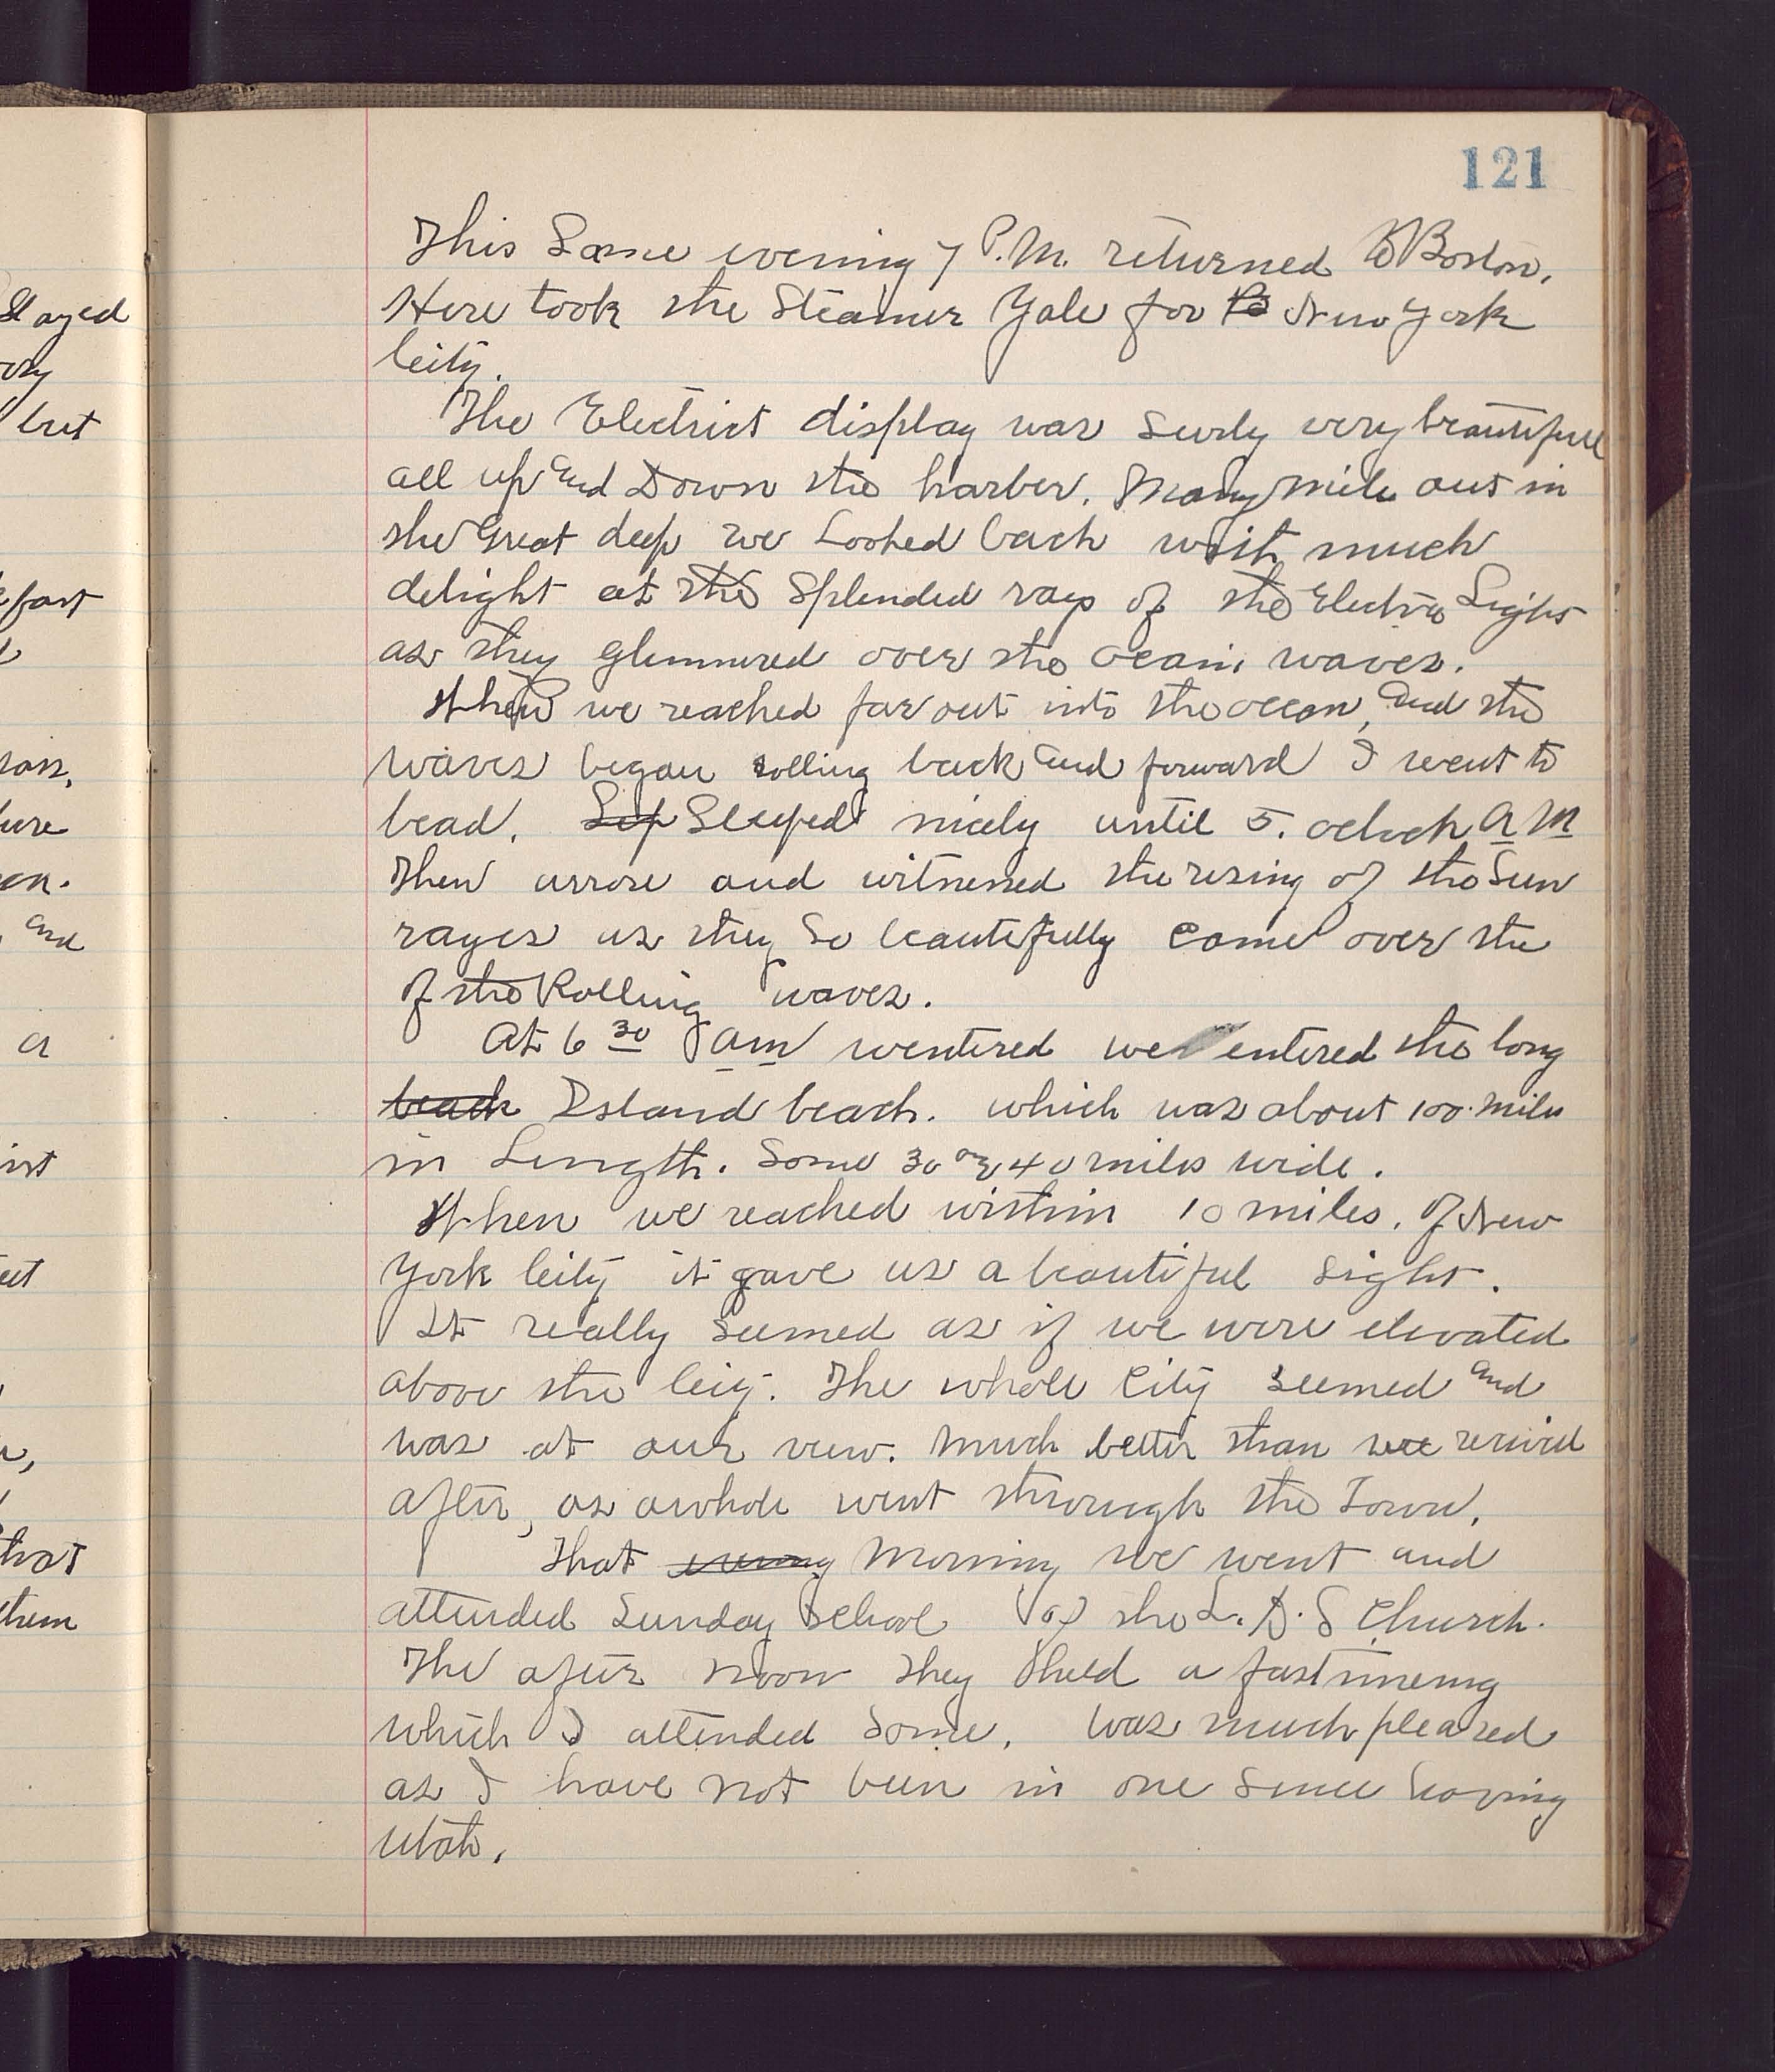 121
This Same evening 7 P.M. returned to Boston,
Here took the Steamer Yale for to New York
City.
The Electrict display was Surly very beautifull
all up and Down the harber. Many mile out in
the Great deep we Looked back with much
delight at the Splended rays of the Electric Lights
as they glimmered over the ocean waves.
When we reached far out into the ocean, and the
waves began rolling back and forward I went to
bead. Slep Sleeped nicely until 5. oclock A M
Then arrose and witnessed the rising of the Sun
rayes as they So beautifully come over the
of the Rolling waves.
At 6 30 am wentered we entered the long
beach Island beach. which was about 100 miles
in Length. Some 30 or 40 miles wide.
When we reached within 10 miles. of New
York City it gave us a beautiful sight.
It really seemed as if we were elevated
above the City. The whole City seemed and
was at our view. Much better than we
after, as awhole went through the Town.
That evening Morning we went and
attended Sunday School of the L. D. S Church.
The after noon They held a fast
which I attended Some, was much pleased
as I have not been in one Since leaving
Utah.
Slayed
but
fast
and
a
that
them